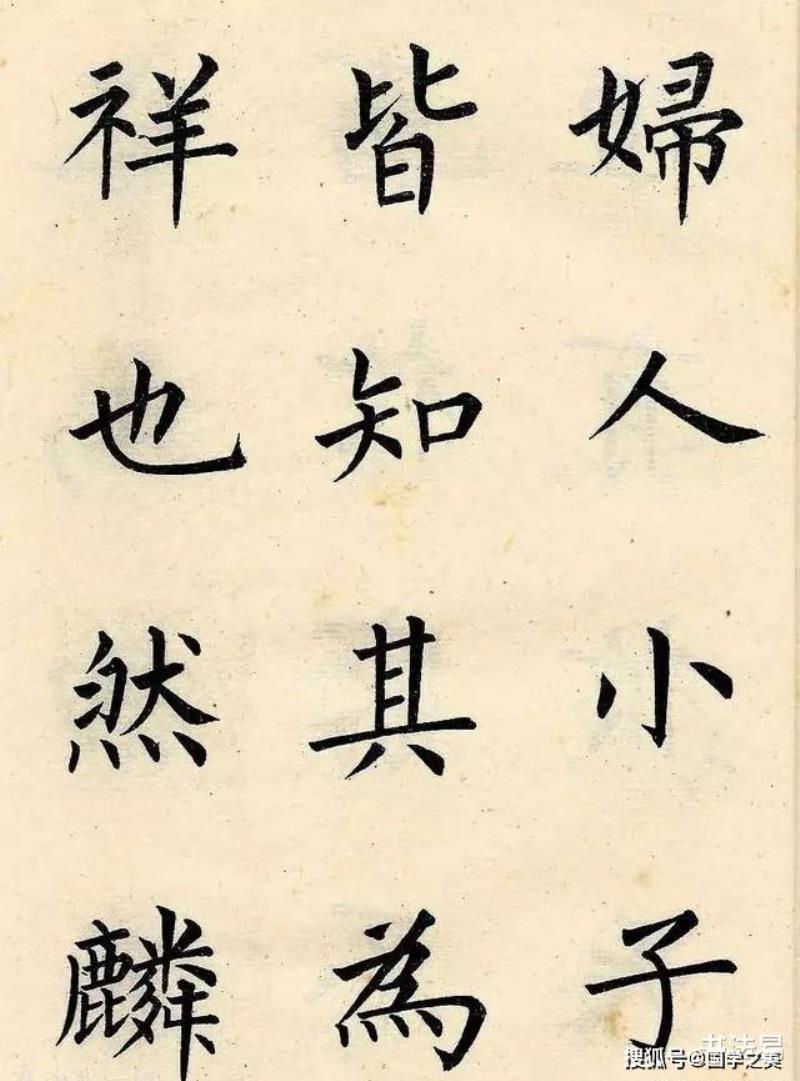 婦人小子
皆知其為
祥也然麟
搜狐号@国学之美